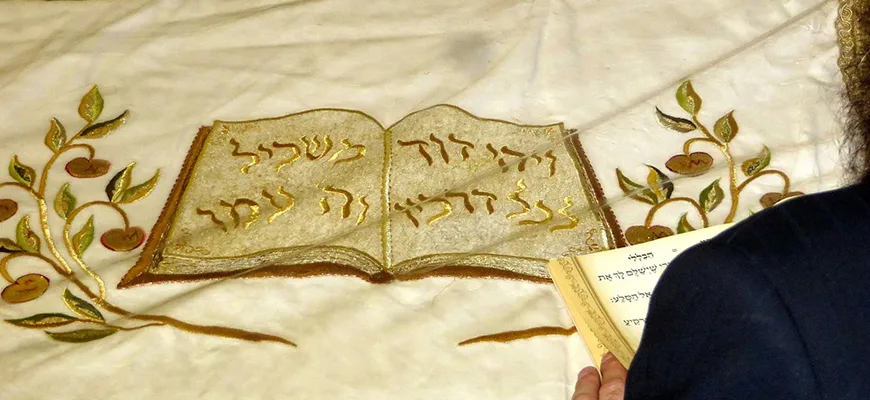 ויהי דוד
לכל דרכיו
משכיל
וה עמו
הכללי
שישלם לך את
אל הסלע: